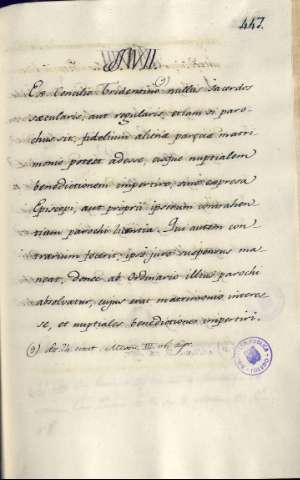 447.
XVII.
Ex Concilio Tridentino (a) nullus sacerdos
sæcularis, aut regularis, etiam si paro-
chus sit, fidelium alienæ parœciæ matri-
monio potest adesse, eisque nuptialem
benedictionem impertire, sine expressa
Episcopi, aut proprii ipsorum contrahen-
tium parochi licentia. Qui autem con-
trarium fecerit, ipso jure suspensus ma-
neat, donec ab Ordinario illius parochi
absolvatur, cujus erat matrimonio interes-
se, et nuptiales benedictiones impertiri.
(a)